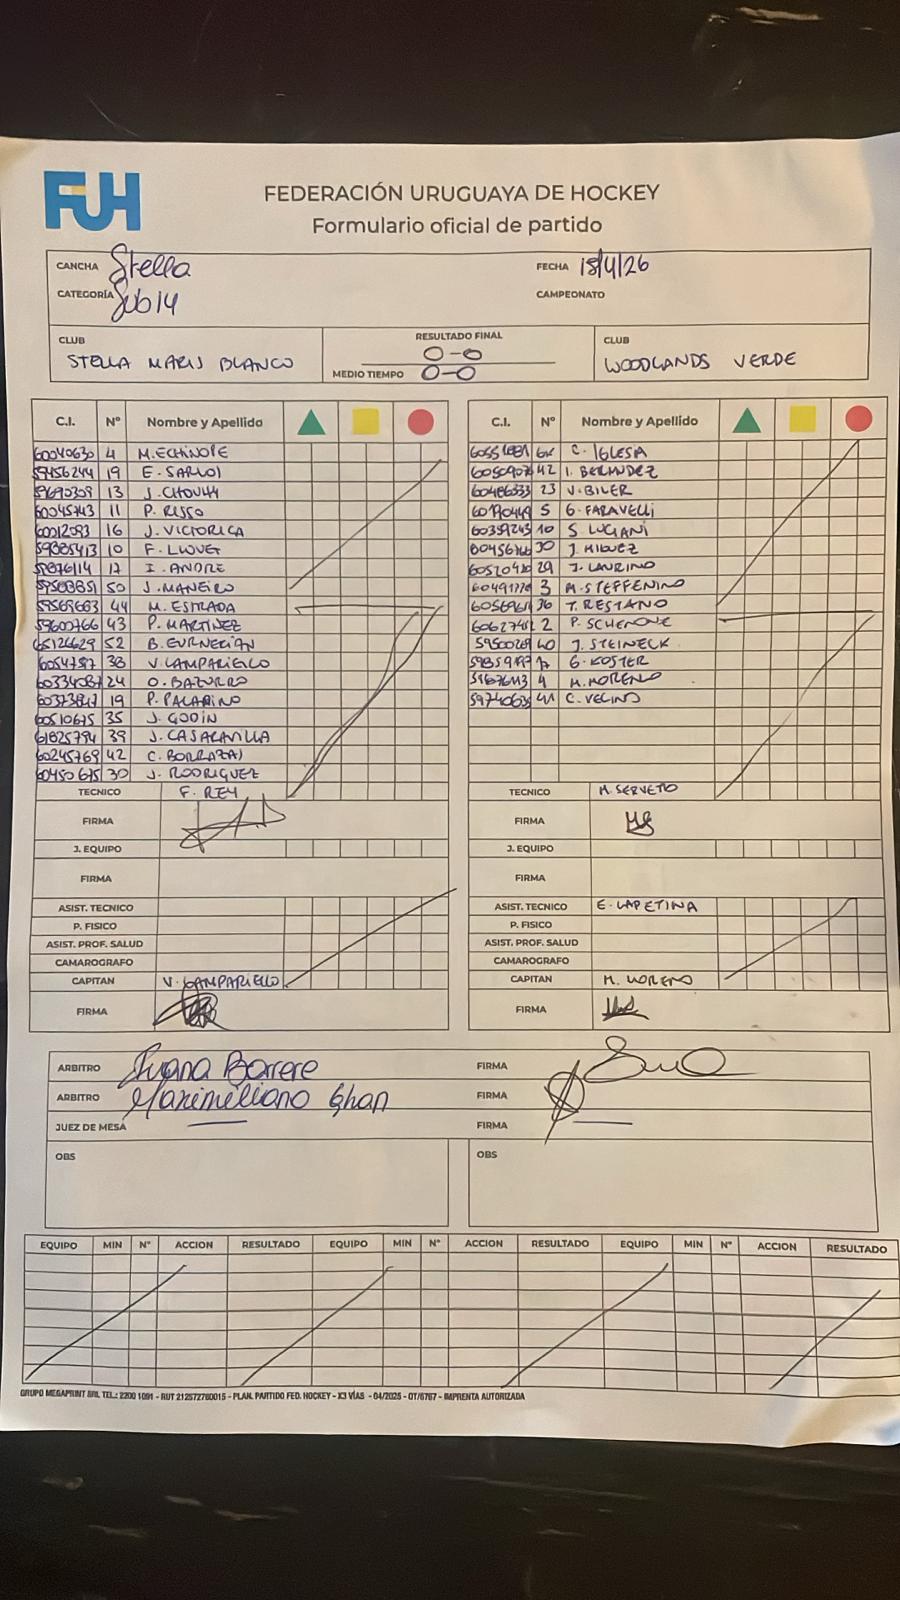 FUH
FEDERACIÓN URUGUAYA DE HOCKEY
Formulario oficial de partido
CANCHA Stella FECHA 18/4/26
CATEGORÍA Sub 14 CAMPEONATO
CLUB STELLA MARIS BLANCO
RESULTADO FINAL 0-0
MEDIO TIEMPO 0-0
CLUB WOODLANDS VERDE
C.I. Nº Nombre y Apellido
4 M. ECHINOPE
59456244 19 E. SARLOI
59690309 13 J. CHOUHY
60045743 11 P. RISSO
60012093 16 J. VICTORICA
59885413 10 F. LLOVET
17 I. ANDRE
50 J. MANEIRO
59569663 44 M. ESTRADA
59600766 43 P. MARTINEZ
65126629 52 B. EURNEKIAN
38 V. CAMPARIELLO
24 O. BAZURRO
19 P. PALARINO
60510675 35 J. GODIN
61825794 39 J. CASARAVILLA
60245769 42 C. BORRAZAS
60450675 30 J. RODRIGUEZ
TECNICO F. REY
FIRMA
J. EQUIPO
FIRMA
ASIST. TECNICO
P. FISICO
ASIST. PROF. SALUD
CAMAROGRAFO
CAPITAN V. CAMPARIELLO
FIRMA
C.I. Nº Nombre y Apellido
C. IGLESIA
42 I. BERMUDEZ
60486333 23 V. BILER
5 G. FARAVELLI
60359243 10 S. LUCIANI
30 J. MIGUEZ
29 J. LAURINO
3 M. STEFFENINO
T. RESTANO
2 P. SCHENONE
40 J. STEINECK
G. KOSTER
4 M. MORENO
41 C. VELINO
TECNICO M. SERVETO
FIRMA
J. EQUIPO
FIRMA
ASIST. TECNICO E. LAPETINA
P. FISICO
ASIST. PROF. SALUD
CAMAROGRAFO
CAPITAN M. MORENO
FIRMA
ARBITRO Juana Barrere FIRMA
ARBITRO Maximiliano Ghan FIRMA
JUEZ DE MESA FIRMA
OBS OBS
EQUIPO MIN Nº ACCION RESULTADO EQUIPO MIN Nº ACCION RESULTADO EQUIPO MIN Nº ACCION RESULTADO
GRUPO MEGAPRINT SRL TEL.: 2200 1091 - RUT 212572760015 - PLAN. PARTIDO FED. HOCKEY - X3 VÍAS - 04/2025 - OT/6767 - IMPRENTA AUTORIZADA